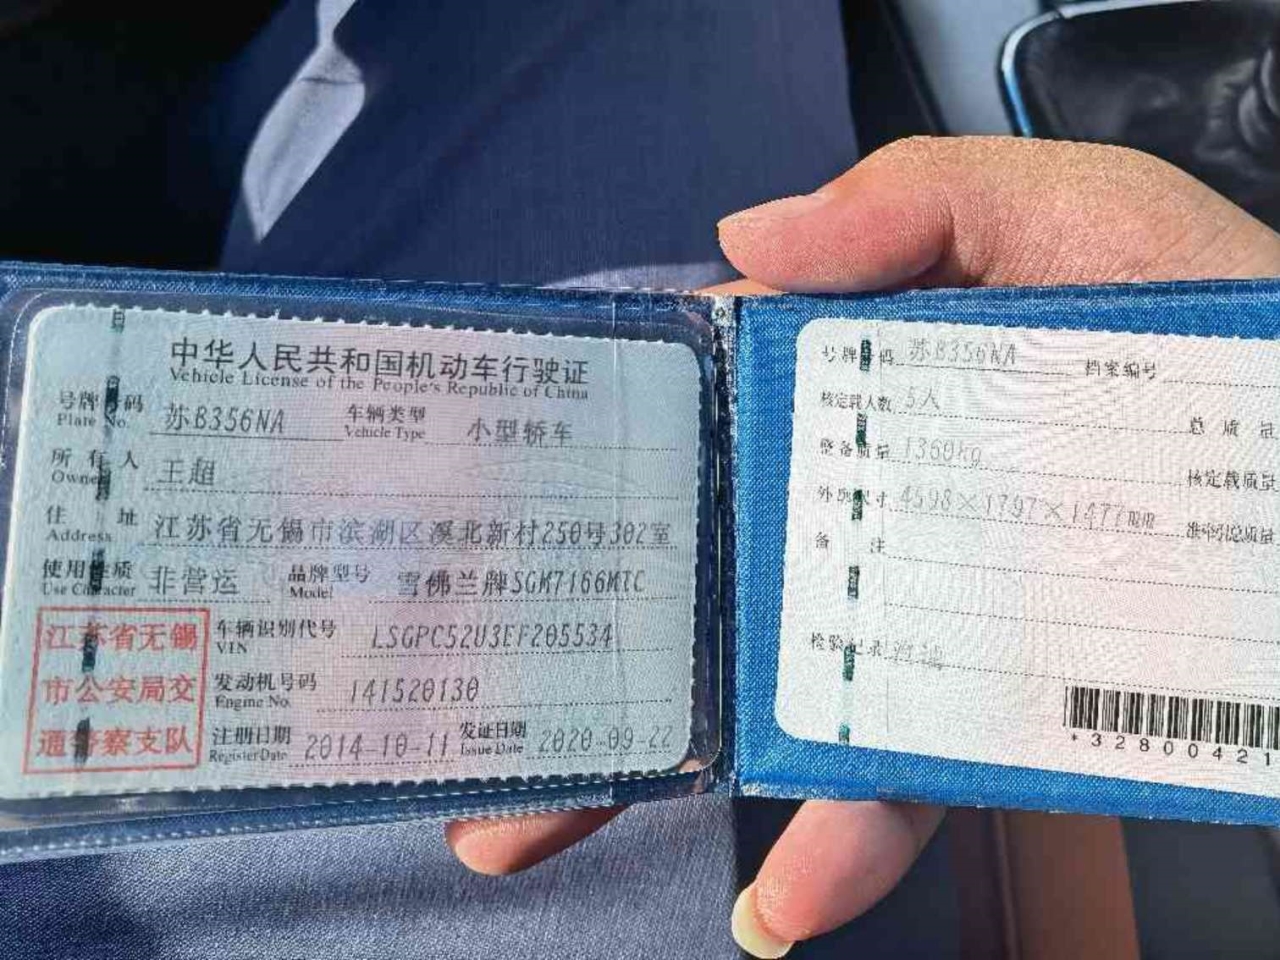 中华人民共和国机动车行驶证
Vehicle License of the People's Republic of China
号牌号码 苏B356NA 车辆类型 小型轿车
Plate No. Vehicle Type
所有人 王超
Owner
住址 江苏省无锡市滨湖区溪北新村250号302室
Address
使用性质 非营运 品牌型号 雪佛兰牌SGM7166MTC
Use Character Model
江苏省无锡
市公安局交
通警察支队
车辆识别代号 LSGPC52U3EF205534
VIN
发动机号码 141520130
Engine No.
注册日期 2014-10-11 发证日期 2020-09-22
Register Date Issue Date
号牌号码 苏B356NA 档案编号
核定载人数 5人 总质量
整备质量 1360kg 核定载质量
外廓尺寸 4598×1797×1477mm 准牵引总质量
备注
检验记录
*32800421